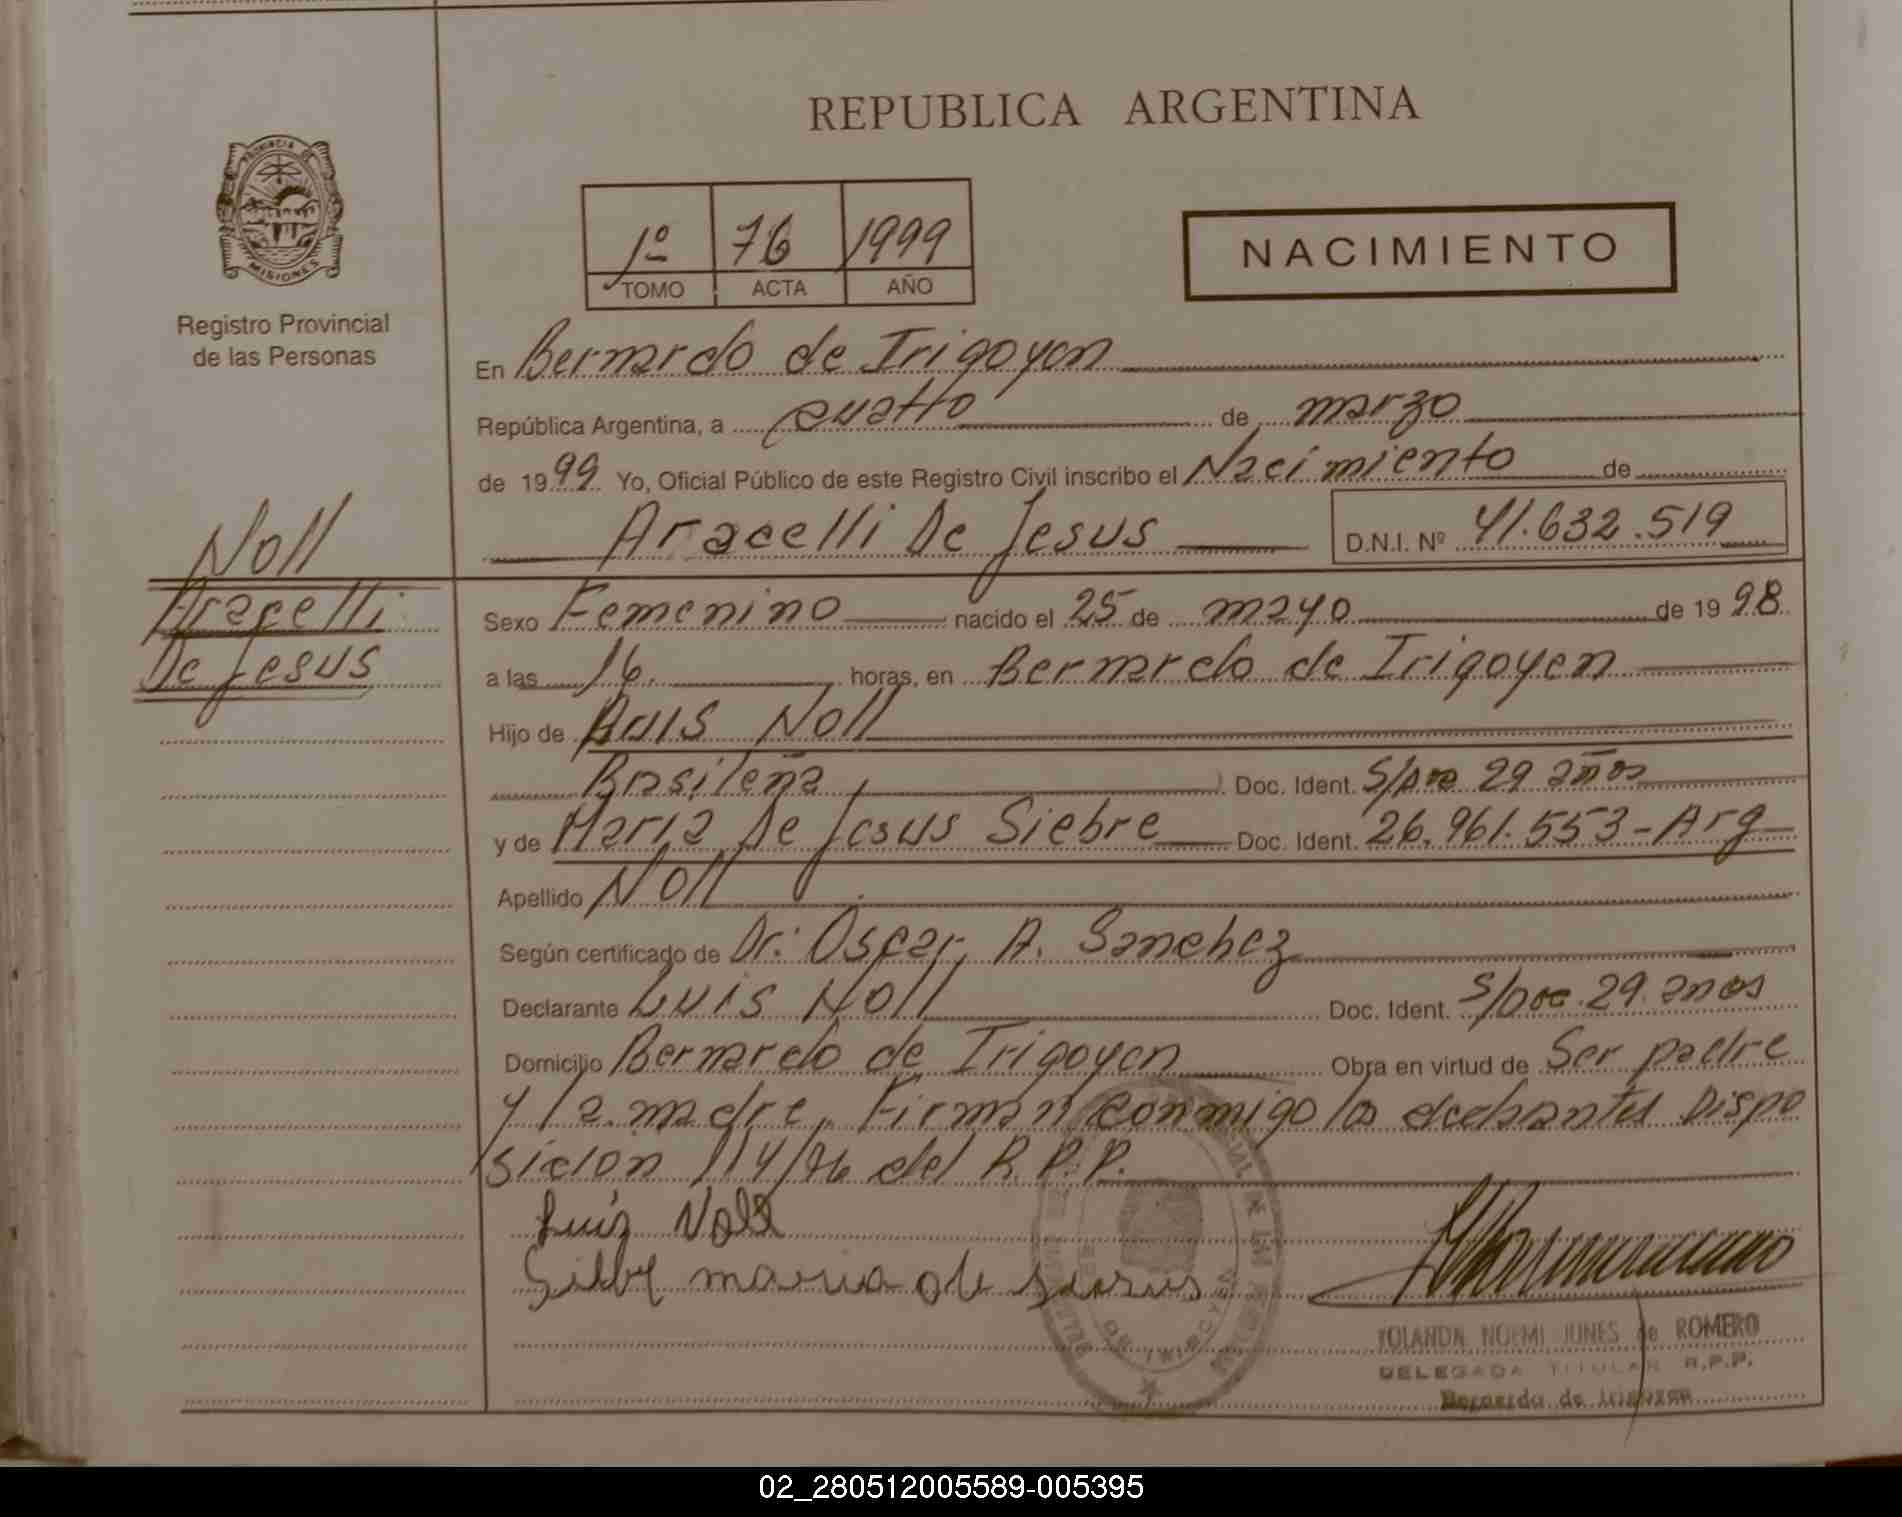 REPUBLICA ARGENTINA
PROVINCIA DE
MISIONES
Registro Provincial
de las Personas
1º 76 1999
TOMO ACTA AÑO
NACIMIENTO
En Bernardo de Irigoyen
República Argentina, a cuatro de marzo
de 1999 Yo, Oficial Público de este Registro Civil inscribo el Nacimiento de
Aracelli De Jesus D.N.I. Nº 41.632.519
Noll
Aracelli
De Jesus
Sexo Femenino nacido el 25 de mayo de 1998
a las 16. horas, en Bernardo de Irigoyen
Hijo de Luis Noll
Brasileña Doc. Ident. S/Doc 29 años
y de Maria De Jesus Siebre Doc. Ident. 26.961.553-Arg
Apellido Noll
Según certificado de Dr: Oscar A. Sanchez
Declarante Luis Noll Doc. Ident. S/Doc. 29 años
Domicilio Bernardo de Irigoyen Obra en virtud de Ser padre
y la madre, Firman conmigo los declarantes Dispo
sicion 114/76 del R.P.P.
Luiz Noll
maria de Jesus
YOLANDA NOEMI JUNES de ROMERO
DELEGADA TITULAR R.P.P.
Bernardo de Irigoyen
02_280512005589-005395